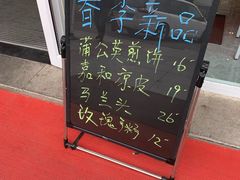 春季新品
蒲公英煎饼 16-
嘉和凉皮 19-
马兰头 26-
玫瑰粥 12-